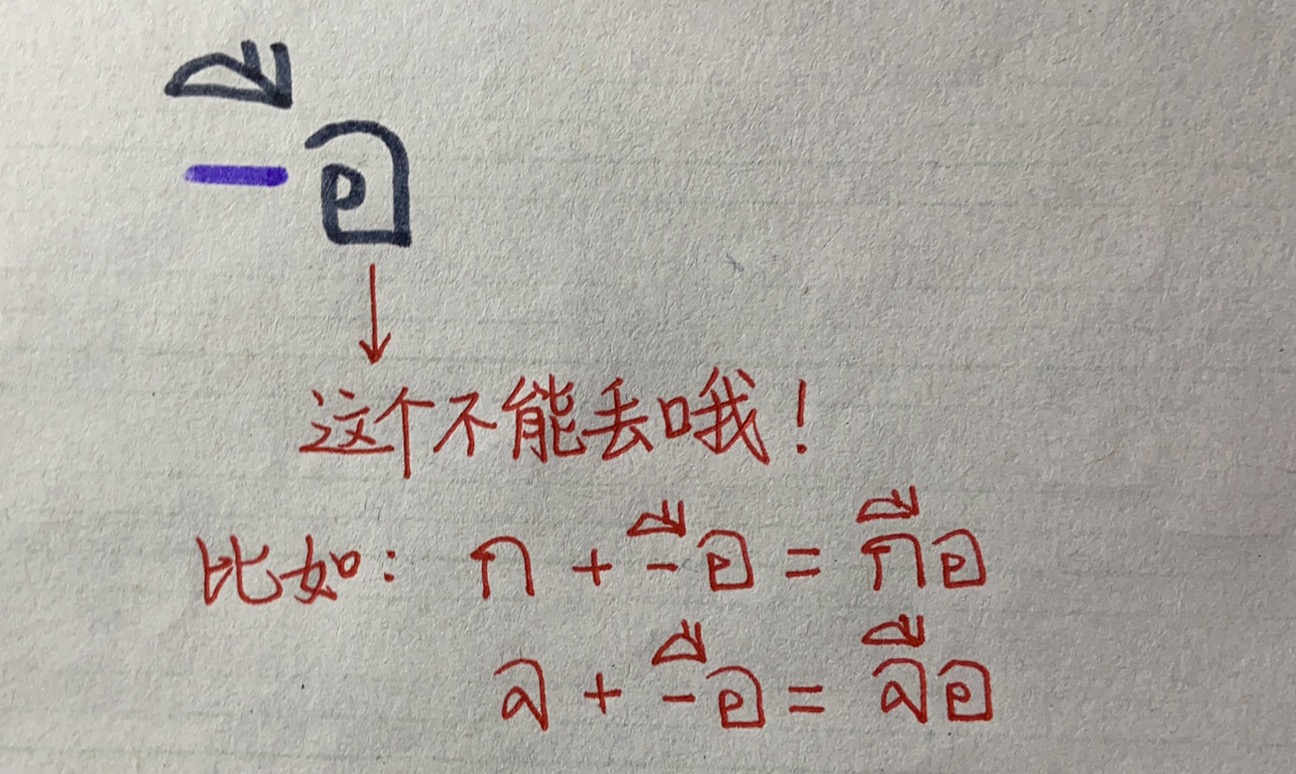 -ือ
这个不能丢哦！
比如： ก + -ือ = กือ
จ + -ือ = จือ